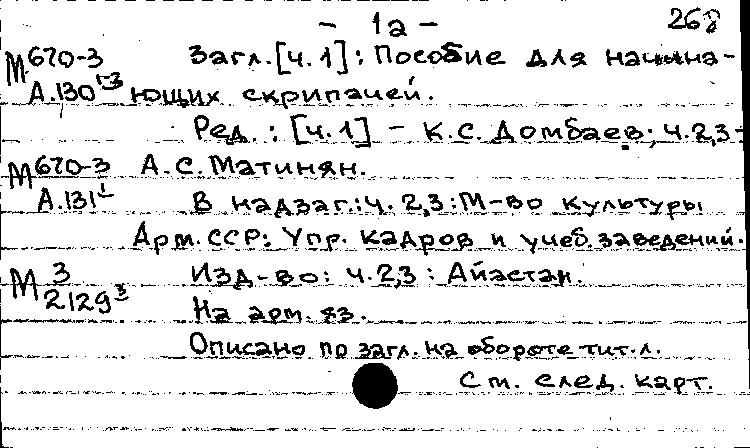 - 1а - 268
М 670-3 Загл. [ч. 1]: Пособие для начина-
А.130 1-3 ющих скрипачей.
Ред.: [ч. 1] - К.С. Домбаев; ч. 2,3-
М 670-3 А.С. Матинян.
А.131 1 В надзаг.: ч. 2,3: М-во культуры
Арм. ССР: Упр. кадров и учеб. заведений.
М 3 Изд-во: ч. 2,3: Айастан.
2129 3 На арм. яз.
Описано по загл. на обороте тит. л.
См. след. карт.